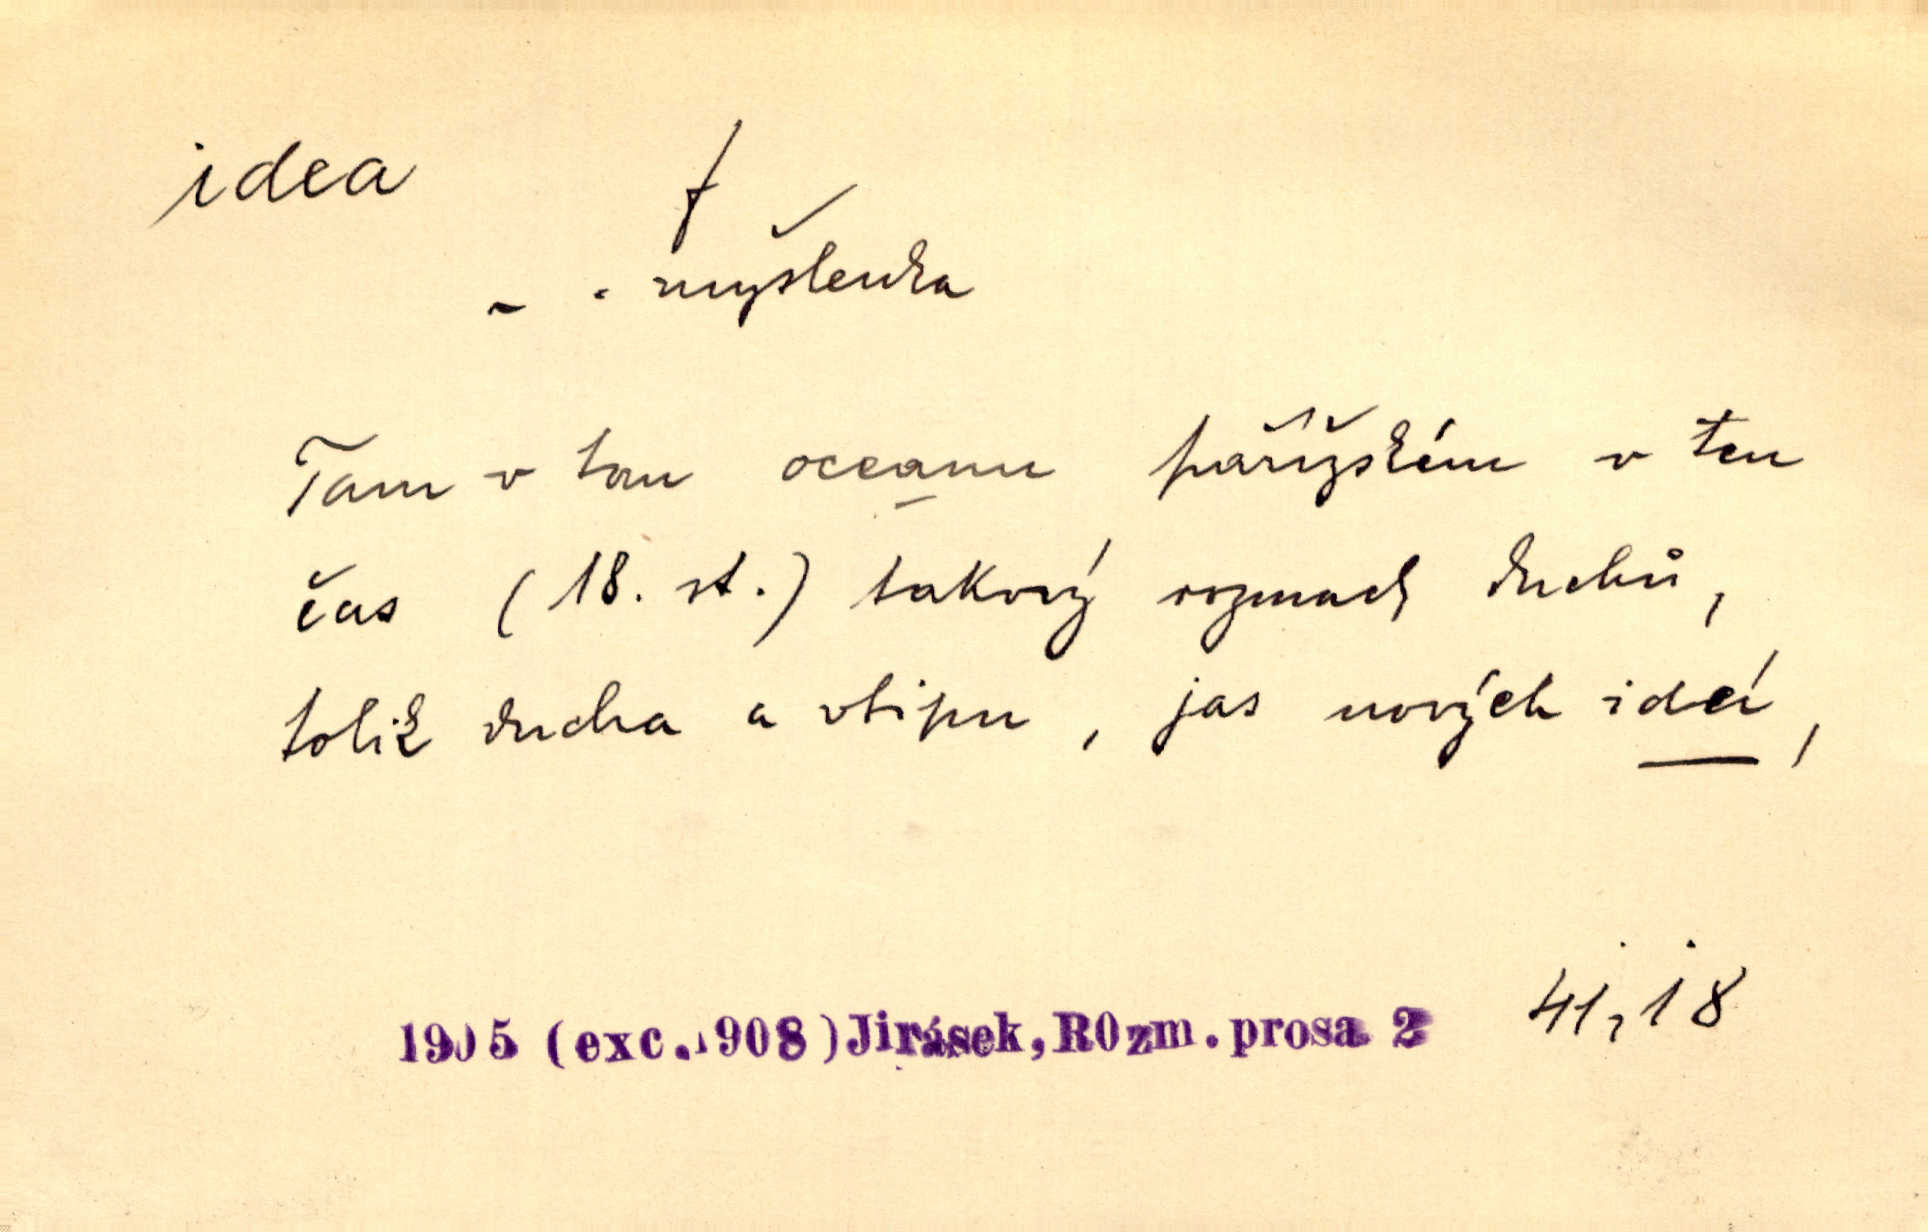 idea f
- - myšlenka
Tam v tom oceanu pařížském v ten
čas (18. st.) takový rozmach duchů,
tolik ducha a vtipu, jas nových ideí,
41,18
1905 (exc. 1908) Jirásek, ROzm. prosa 2